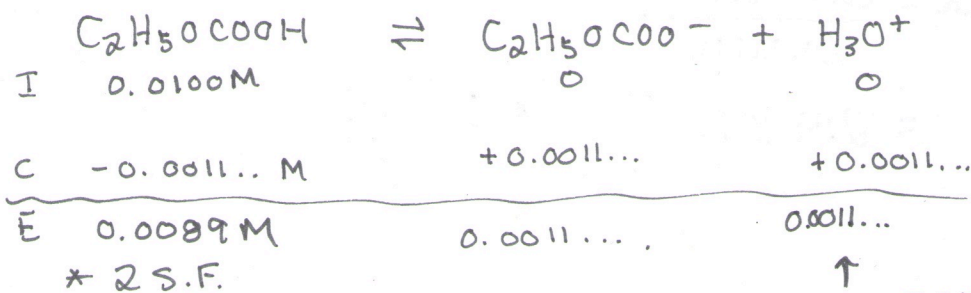 C₂H₅OCOOH ⇌ C₂H₅OCOO⁻ + H₃O⁺
I 0.0100M 0 0
C -0.0011.. M +0.0011... +0.0011...
E 0.0089M 0.0011.... 0.0011...
* 2 S.F. ↑